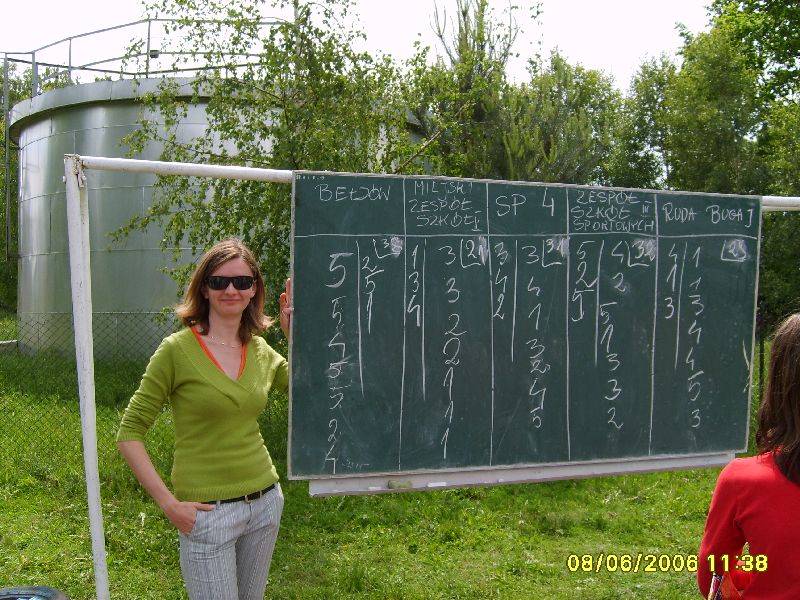 BEŁDÓW
5 2 38
5
1
5
4
5
5
2
4
MIEJSKI
ZESPÓŁ
SZKÓŁ I
1 3 21
3 3
4 2
2
1
1
1
SP 4
3 3 31
4 4
2 1
3
2
4
5
ZESPÓŁ
SZKÓŁ III
SPORTOWYCH
5 4 32
2 2
5 5
1
3
3
2
RUDA BUGAJ
4 1 28
1 1
3 3
4
4
5
3
08/06/2006 11:38